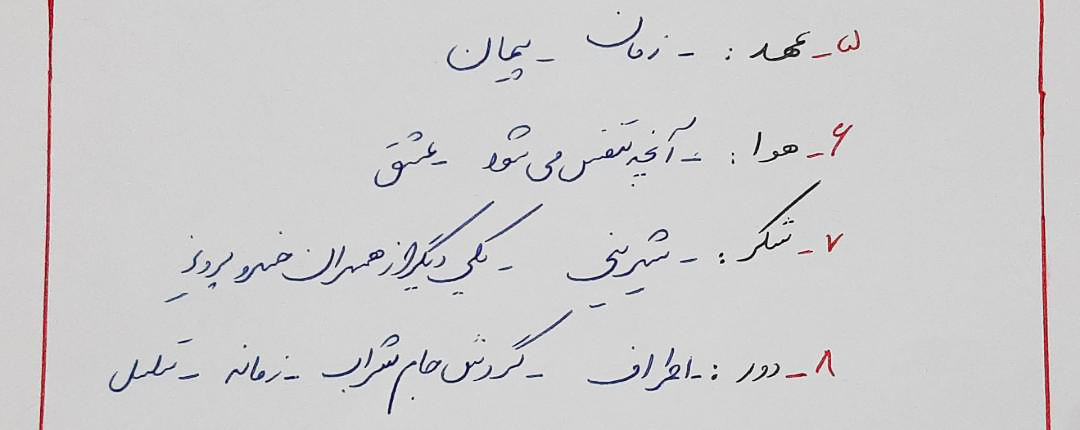 ۵- عهد: - زمان - پیمان
۶- هوا: - آنچه تنفس می شود - عشق
۷- شکر: - شیرینی - یکی دیگر از همسران خسرو پرویز
۸- دور: - اطراف - گردش جام شراب - زمانه - تسلسل